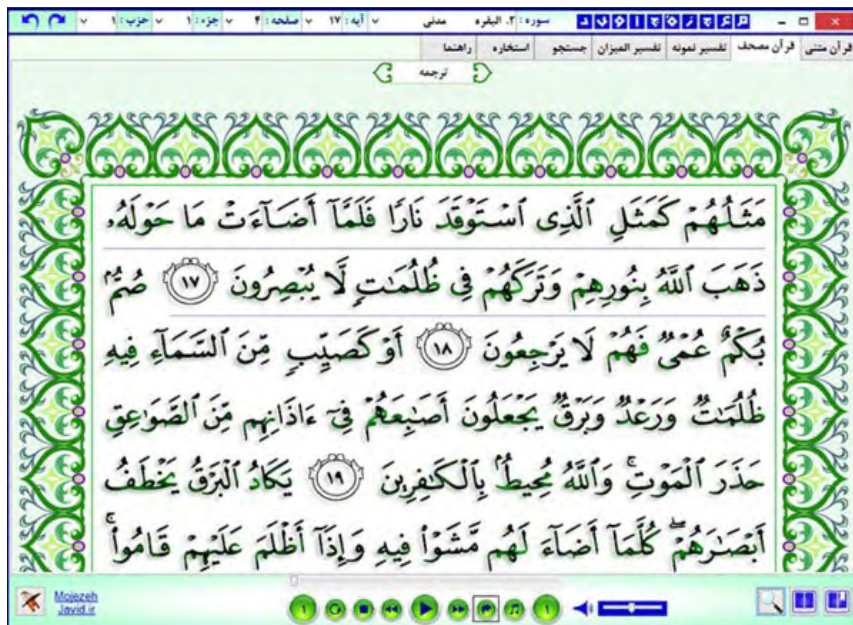 سوره : ۲. البقره مدنی آیه : ۱۷ صفحه : ۴ جزء : ۱ حزب : ۱
قرآن متنی قرآن مصحف تفسیر نمونه تفسیر المیزان جستجو استخاره راهنما
ترجمه
مَثَلُهُمْ كَمَثَلِ ٱلَّذِى ٱسْتَوْقَدَ نَارًا فَلَمَّآ أَضَآءَتْ مَا حَوْلَهُۥ
ذَهَبَ ٱللَّهُ بِنُورِهِمْ وَتَرَكَهُمْ فِى ظُلُمَٰتٍ لَّا يُبْصِرُونَ ١٧ صُمٌّۢ
بُكْمٌ عُمْىٌ فَهُمْ لَا يَرْجِعُونَ ١٨ أَوْ كَصَيِّبٍ مِّنَ ٱلسَّمَآءِ فِيهِ
ظُلُمَٰتٌ وَرَعْدٌ وَبَرْقٌ يَجْعَلُونَ أَصَٰبِعَهُمْ فِىٓ ءَاذَانِهِم مِّنَ ٱلصَّوَٰعِقِ
حَذَرَ ٱلْمَوْتِ ۚ وَٱللَّهُ مُحِيطٌۢ بِٱلْكَٰفِرِينَ ١٩ يَكَادُ ٱلْبَرْقُ يَخْطَفُ
أَبْصَٰرَهُمْ ۖ كُلَّمَآ أَضَآءَ لَهُم مَّشَوْا۟ فِيهِ وَإِذَآ أَظْلَمَ عَلَيْهِمْ قَامُوا۟ ۚ
Mojezeh
Javid.ir
۱ ۱